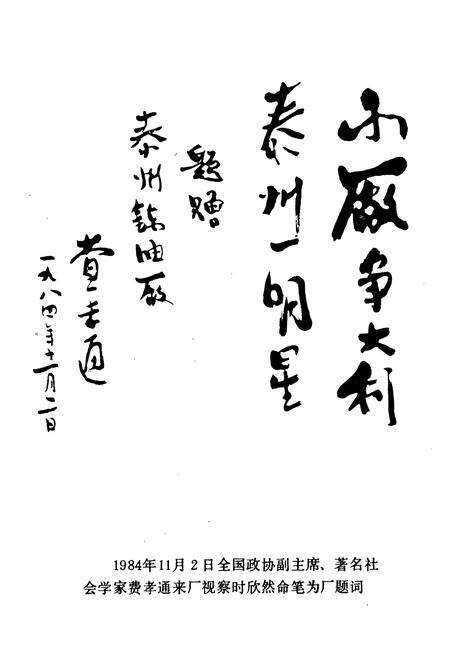 小廠争大利
泰州一明星
题赠
泰州油廠
費孝通
一九八四年十一月二日
1984年11月2日全国政协副主席、著名社
会学家费孝通来厂视察时欣然命笔为厂题词